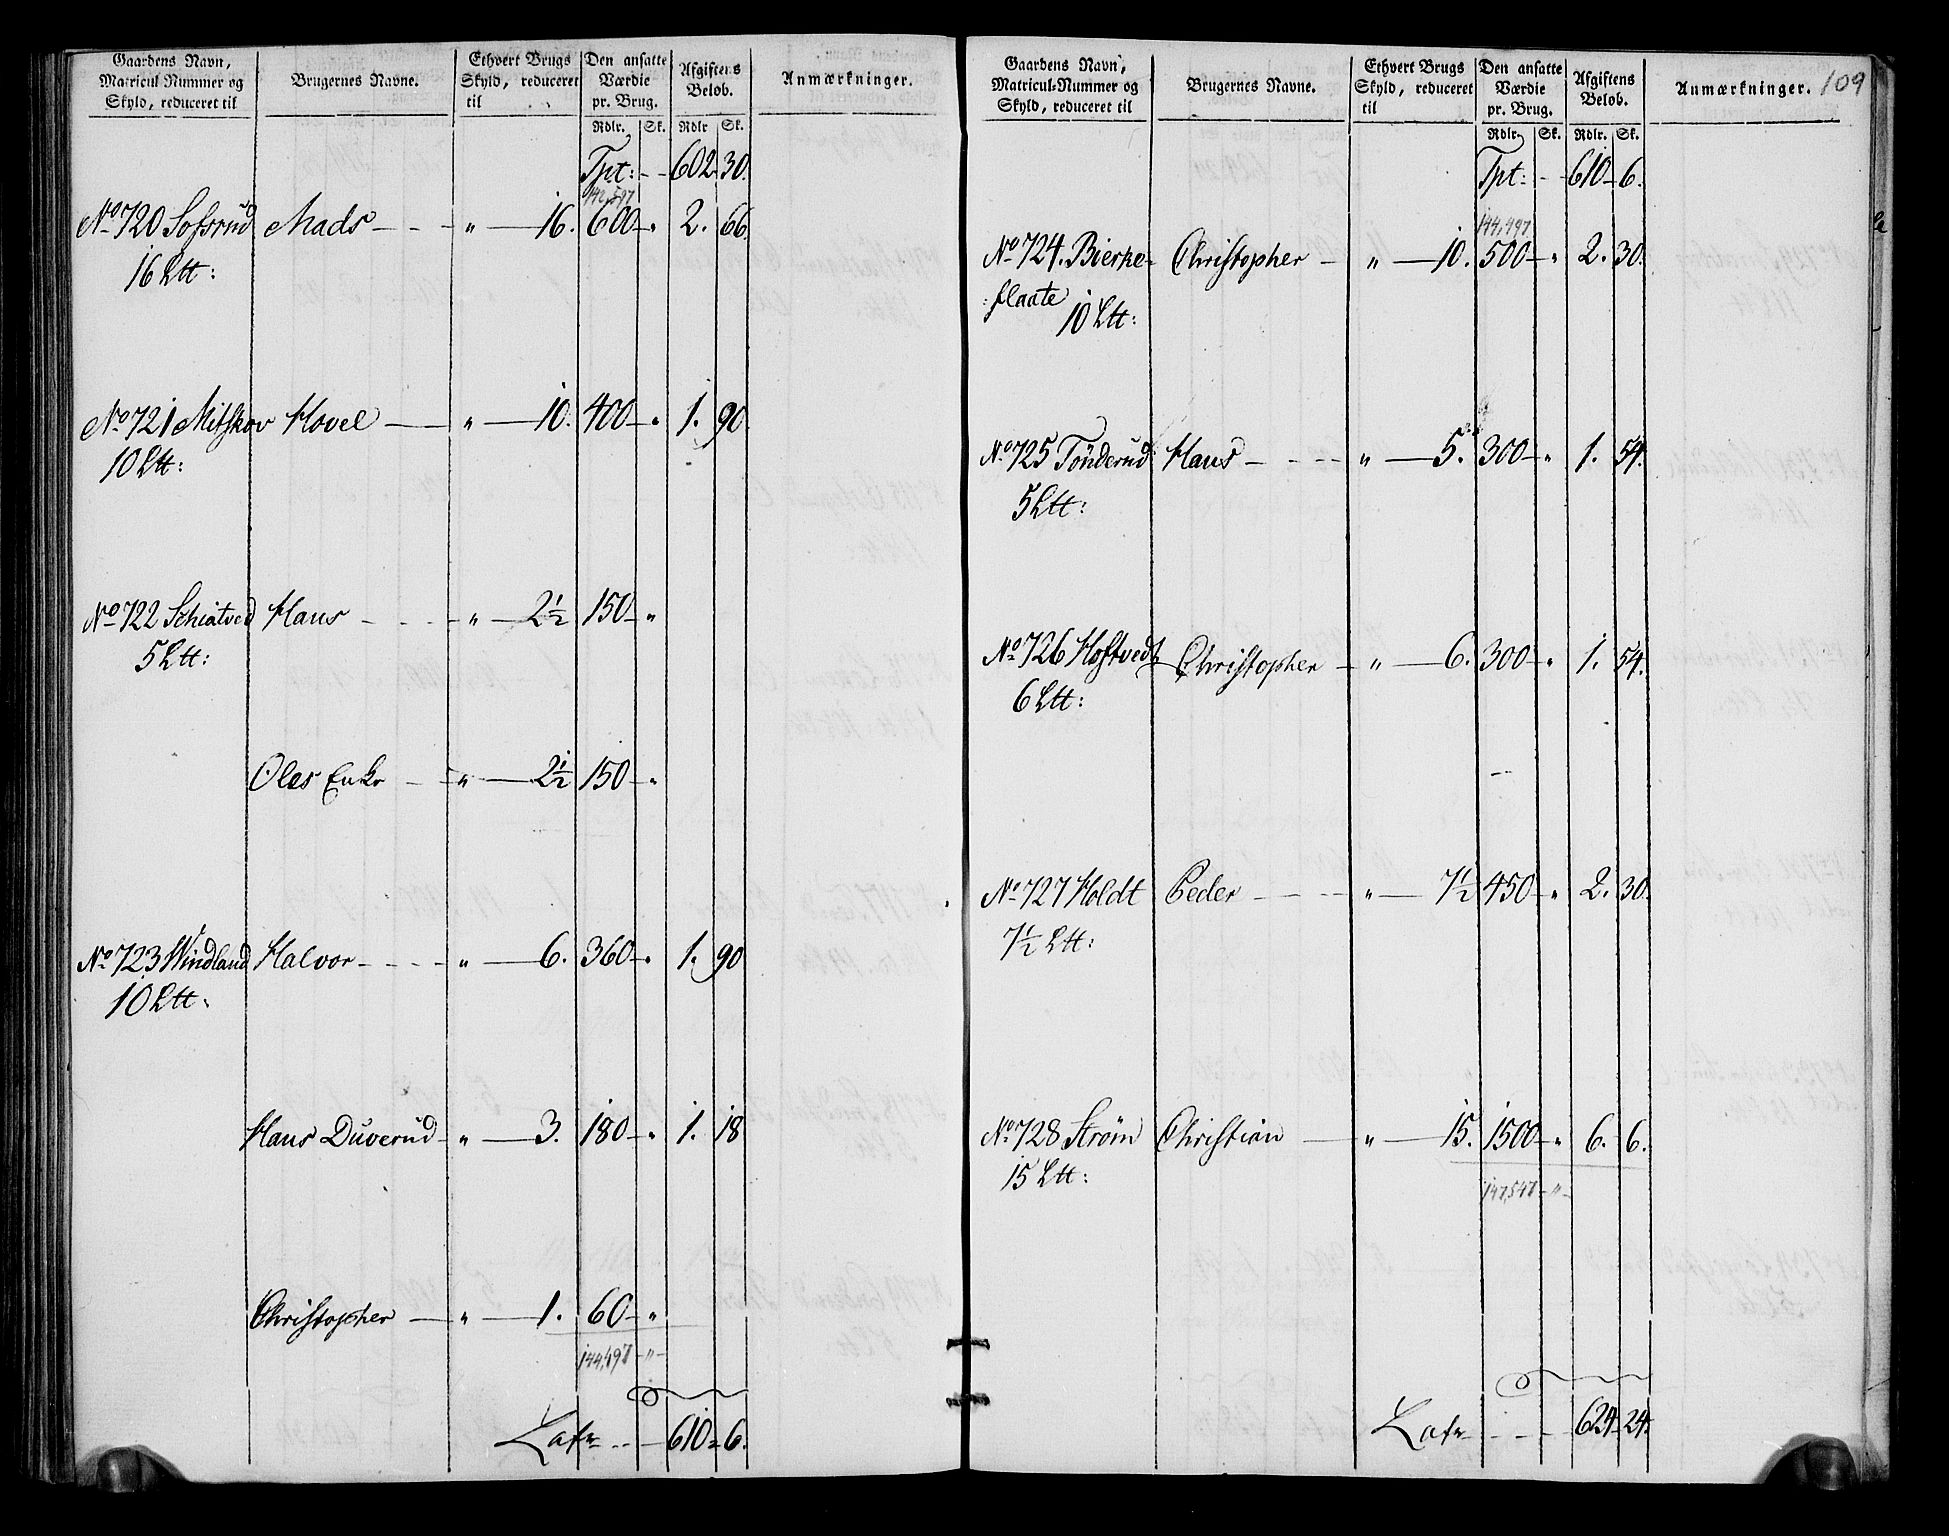 Gaardens Navn, Matricul Nummer og Skyld, reduceret til | Brugernes Navne. | Ethvert Brugs Skyld, reduceret til | Den ansatte Værdie pr. Brug. Rdlr. Sk. | Afgiftens Beløb. Rdlr Sk. | Anmærkninger.
Tpt: - - 602 30.
142,597
No 720 Sofsrud Mads - - - " - 16. 600 - " 2. 66.
16 Ltt:
No 721 Mitskov Hovel - - " - 10. 400 - " 1. 90
10 Ltt:
No 722 Schiatved Hans - - - - " - 2½ 150 - "
5 Ltt:
Oles Enke - - " - 2½ 150 - "
No 723 Windland Halvor - - - - " - 6. 360 - " 1. 90
10 Ltt:
Hans Duverud - " - 3. 180 - " 1. 18
Christopher - " - 1. 60 - "
144,497 - " -
Latr - - - 610 - 6.
Gaardens Navn, Matricul-Nummer og Skyld, reduceret til | Brugernes Navne. | Ethvert Brugs Skyld, reduceret til | Den ansatte Værdie pr. Brug. Rdlr. Sk. | Afgiftens Beløb. Rdlr. Sk. | Anmærkninger. 109
Tpt: - - 610 - 6.
144,497
No 724. Bierke- Christopher - " - 10. 500 - " 2. 30.
:flaate
10 Ltt:
No 725 Tönderud Hans - - - - " - 5. 300 - " 1. 54.
5 Ltt:
No 726 Hoftvedt Christopher - " - 6. 300 - " 1. 54.
6 Ltt:
No 727 Holdt Peder - - - - " - 7½ 450 - " 2. 30.
7½ Ltt:
No 728 Strøm Christian - " - 15. 1500 - " 6. 6.
15 Ltt:
147,547 - " -
Latr - - - 624 24.